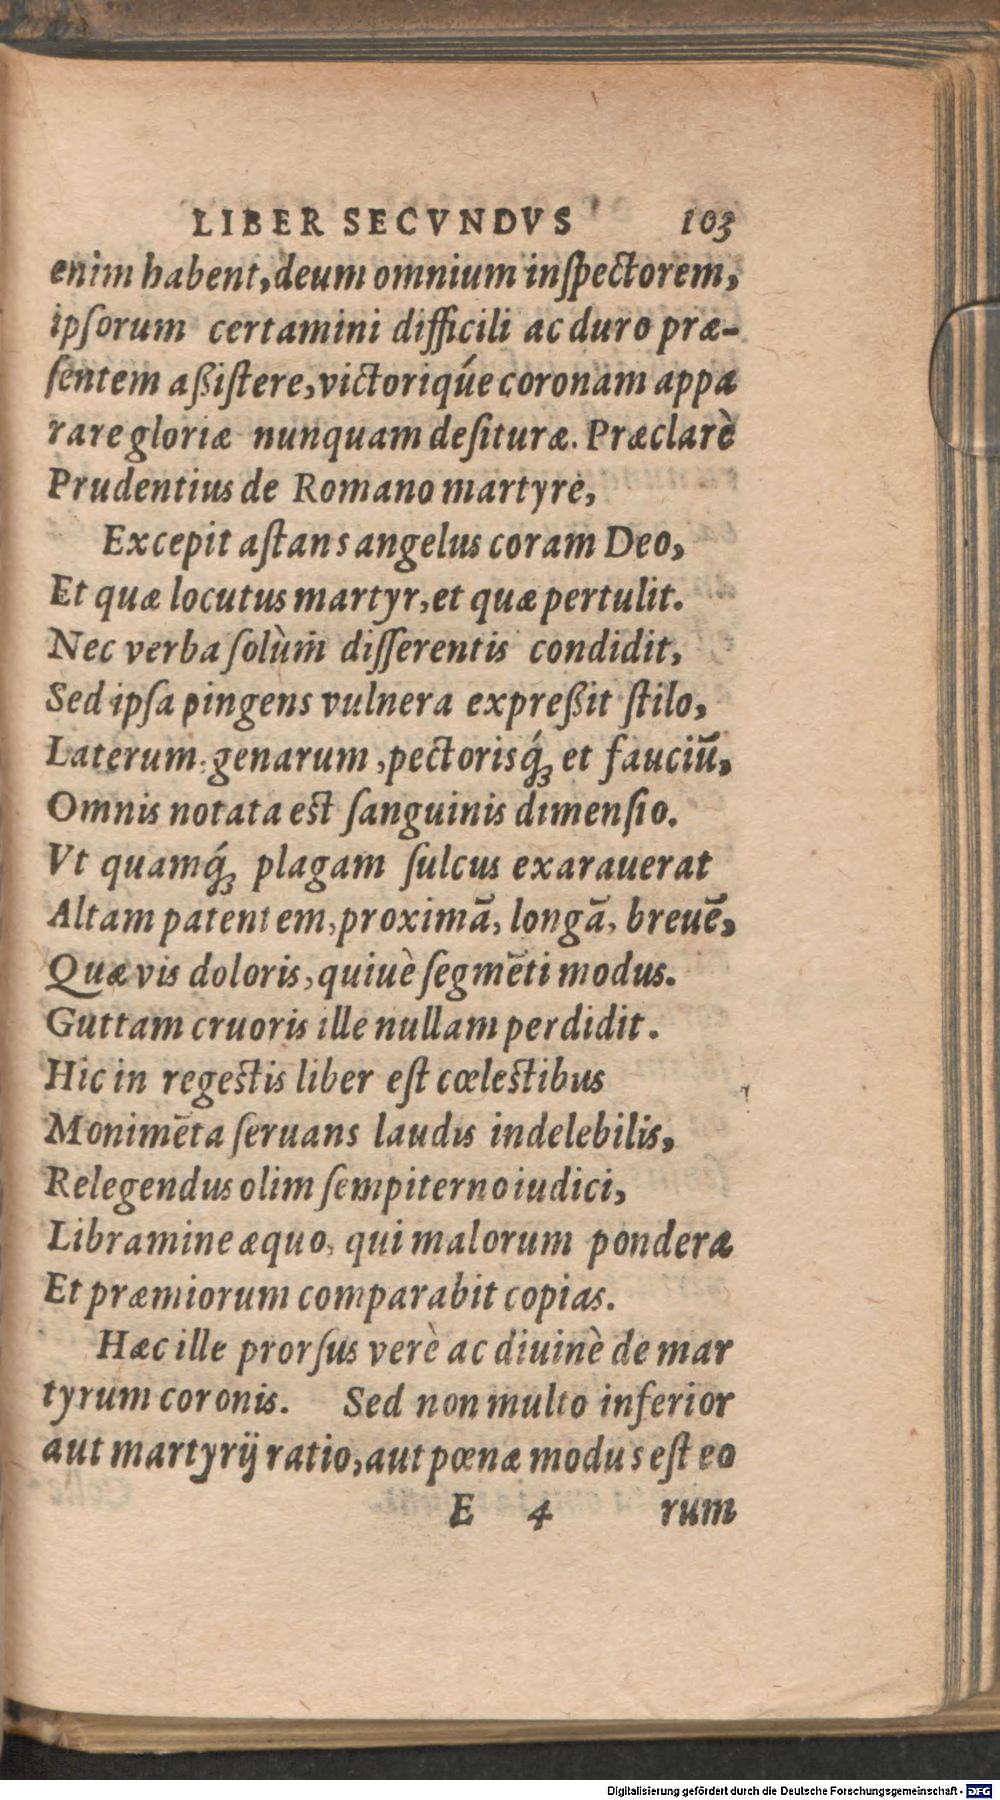 LIBER SECVNDVS 103
enim habent, deum omnium inſpectorem,
ipſorum certamini difficili ac duro præ-
ſentem aßiſtere, victoriq́ue coronam appa
rare gloriæ nunquam deſituræ. Præclarè
Prudentius de Romano martyre,
Excepit aſtans angelus coram Deo,
Et quæ locutus martyr, et quæ pertulit.
Nec verba ſolùm̄ diſſerentis condidit,
Sed ipſa pingens vulnera expreßit ſtilo,
Laterum, genarum, pectorisq́ꝫ et fauciū,
Omnis notata est ſanguinis dimenſio.
Vt quamq́ꝫ plagam ſulcus exarauerat
Altam patentem, proximā, longā, breuē,
Quæ vis doloris, quiuè ſegmēti modus.
Guttam cruoris ille nullam perdidit.
Hic in regestis liber eſt cœlestibus
Monimēta ſeruans laudis indelebilis,
Relegendus olim ſempiterno iudici,
Libramine æquo, qui malorum pondera
Et præmiorum comparabit copias.
Hæc ille prorſus verè ac diuinè de mar
tyrum coronis. Sed non multo inferior
aut martyrij ratio, aut pœnæ modus eſt eo
E 4 rum
Digitalisierung gefördert durch die Deutsche Forschungsgemeinschaft - DFG